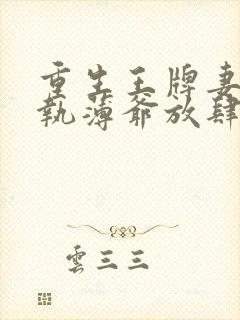 重生王牌妻
執薄爺放肆
雲三三